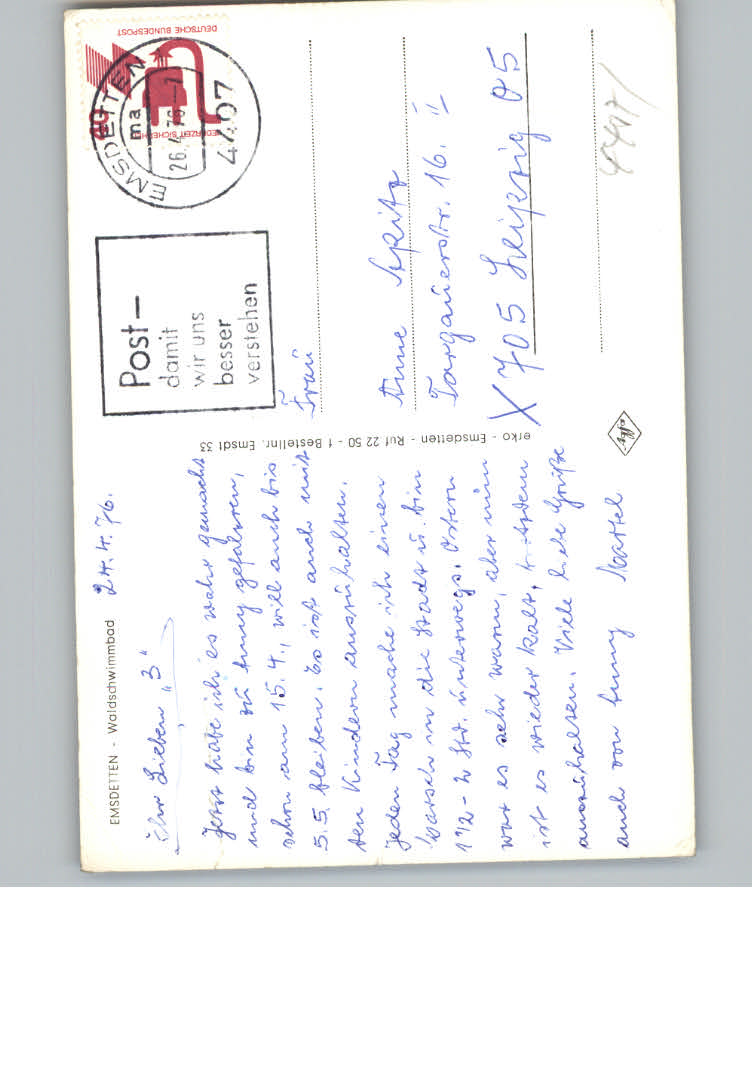 EMSDETTEN - Waldschwimmbad
24.4.76.
Ihr Lieben "3"
Jetzt habe ich es wahr gemacht
und bin zu Anny gefahren,
schon am 15.4., will auch bis
5.5. bleiben. Es ist auch mit
den Kindern auszuhalten.
Jeden Tag mache ich einen
Marsch in die Stadt u. bin
1 1/2 - 2 Std. unterwegs. Ostern
war es sehr warm, aber nun
ist es wieder kalt, trotzdem
auszuhalten. Viele liebe Grüße
auch von Anny Martel
erko - Emsdetten - Ruf 22 50 - f Bestellnr. Emsdt 33
Post-
damit
wir uns
besser
verstehen
EMSDETTEN
ma
26.4.76
4407
DEUTSCHE BUNDESPOST
JEDERZEIT SICHERHEIT
40
Frau
Anne Spitz
Torgauerstr. 16. II
X 705 Leipzig 05